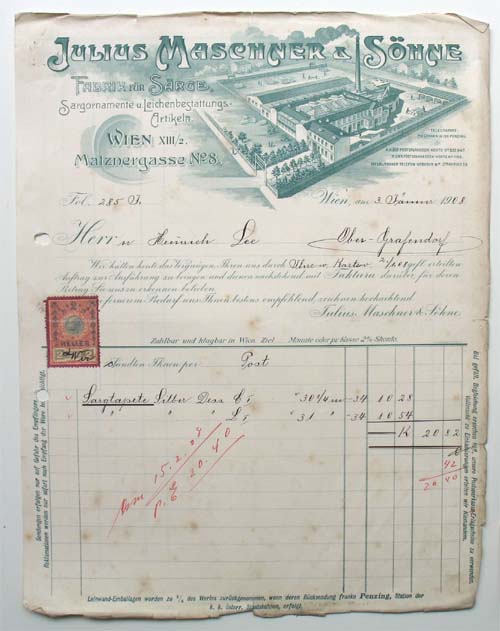 Julius Maschner & Söhne
Fabrik für Särge,
Sargornamente u. Leichenbestattungs-
Artikeln.
Wien XIII/2.
Matznergasse No 8.
TELEGRAMME:
MASCHNER WIEN PENZING
Fol. 285 J.
Wien, am 3. Jänner 1908
Herrn Heinrich Lee
Ober-Grafendorf
Wir hatten heute das Vergnügen, Ihnen aus durch Ihre w. Karte v. 2/1.08 gefl. erteilten
Auftrag zur Ausführung zu bringen und dienen nachstehend mit Faktura darüber, für deren
Betrag Sie uns zu erkennen belieben.
fernerem Bedarf uns Ihnen bestens empfehlend, zeichnen hochachtend
Julius Maschner & Söhne.
HELLER
Zahlbar und klagbar in Wien. Ziel Monate oder pr. Kasse 2% Skonto.
Sandten Ihnen per Post
Sargtapete Silber Dess. 30 1/4 m -34 10 28
" " " 31 " -34 10 54
K 20 82
42
20 40
15.2.08
20.40
Sendungen erfolgen nur auf Gefahr des Empfängers.
Reklamationen werden nur sofort nach Empfang der Ware
Bei gefäll. Begleichung ersuchen höfl., unsere Postsparkassa-Erlagscheine zu verwenden.
Leinwand-Emballagen werden zu 3/4 des Wertes zurückgenommen, wenn deren Rücksendung franko Penzing, Station der
k. k. österr. Staatsbahnen, erfolgt.